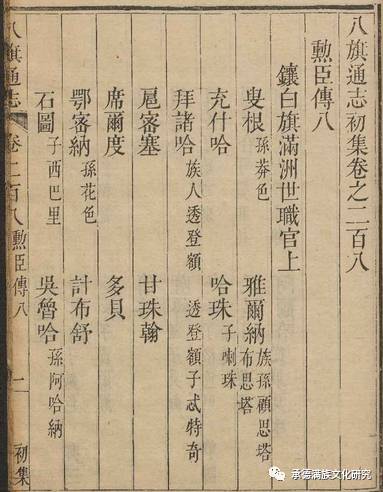 八旗通志初集卷之二百八
勲臣傳八
鑲白旗滿洲世職官上
叟根 孫莽色 雅爾納 族孫顧思塔 布思塔
充什哈 哈珠 子喇珠
拜諸哈 族人透登額 透登額子忒特奇
扈宻塞 甘珠翰
席爾度 多貝
鄂宻納 孫花色 計布舒
石圖 子西巴里 吳魯哈 孫阿哈納
八旗通志 卷二百八 勲臣傳八 二 初集
承德满族文化研究